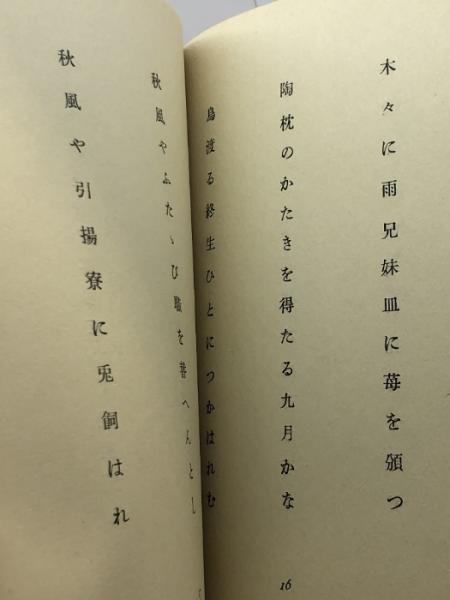 木々に雨兄妹皿に苺を頒つ
陶枕のかたきを得たる九月かな
鳥渡る終生ひとにつかはれむ
16
秋風やふたゝび職を替へんとし
秋風や引揚寮に兎飼はれ